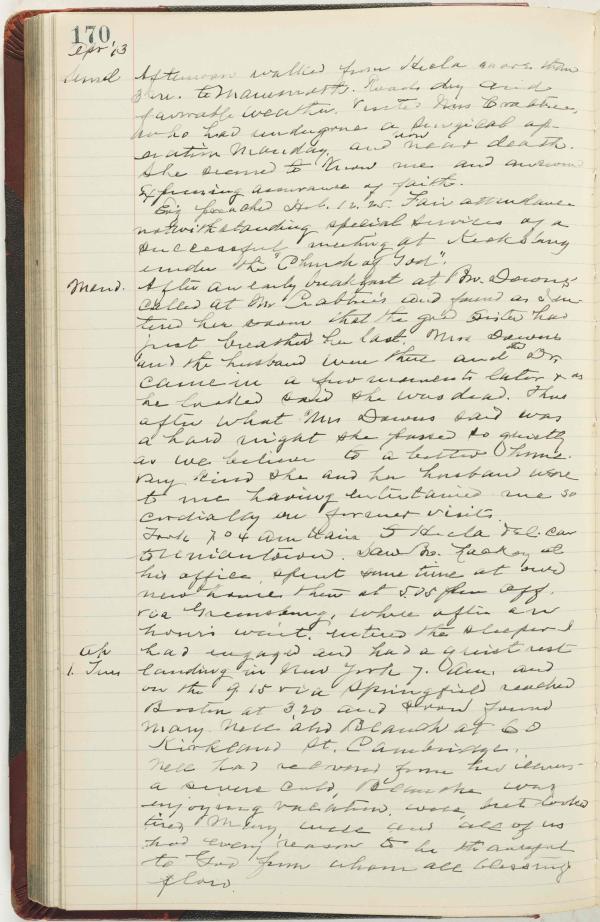 170
Apr '13
Afternoon walked from Hecla more than
3 m. to Mammoth. Roads dry and
favorable weather. Visited Mrs Crabtree,
who had undergone a surgical op-
eration Monday, and now near death.
She seemed to know me and answered
Expressing assurance of faith.
Eig preached Heb. 12.25. Fair attendance
notwithstanding special services of a
successful meeting at Kecksburg
under the "Church of God".
Mond. After an early breakfast at Bro. Downs,
called at Mr Crabtree's and found as I en-
tered her room that the good sister had
just breathed her last. Mrs Downs
and the husband were there and the Dr,
came in a few moments later & as
he looked said she was dead. Thus
after what Mrs Downs said was
a hard night she passed so quietly
as we believe to a better home.
Very kind she and her husband were
to me having entertained me so
cordially on former visits.
Took 7.04 am train to Hecla & El. car
to Uniontown. Saw Bro. Lackey at
his office, spent some time at our
new home then at 5.05 pm off.
via Greensburg, where after an
hours wait, entered the sleeper I
had engaged and had a quiet rest
1. Tues landing in New York 7. am. and
on the 9 15 via Springfield reached
Boston at 3,20 and soon found
Mary, Nell and Blanch at 60
Kirkland St. Cambridge.
Nell had recovered from her illness
a severe cold, Blanche was
enjoying vacation, well, but looked
tired, Mary, well and all of us
had every reason to be thankful
to God from whom all blessings
flow.